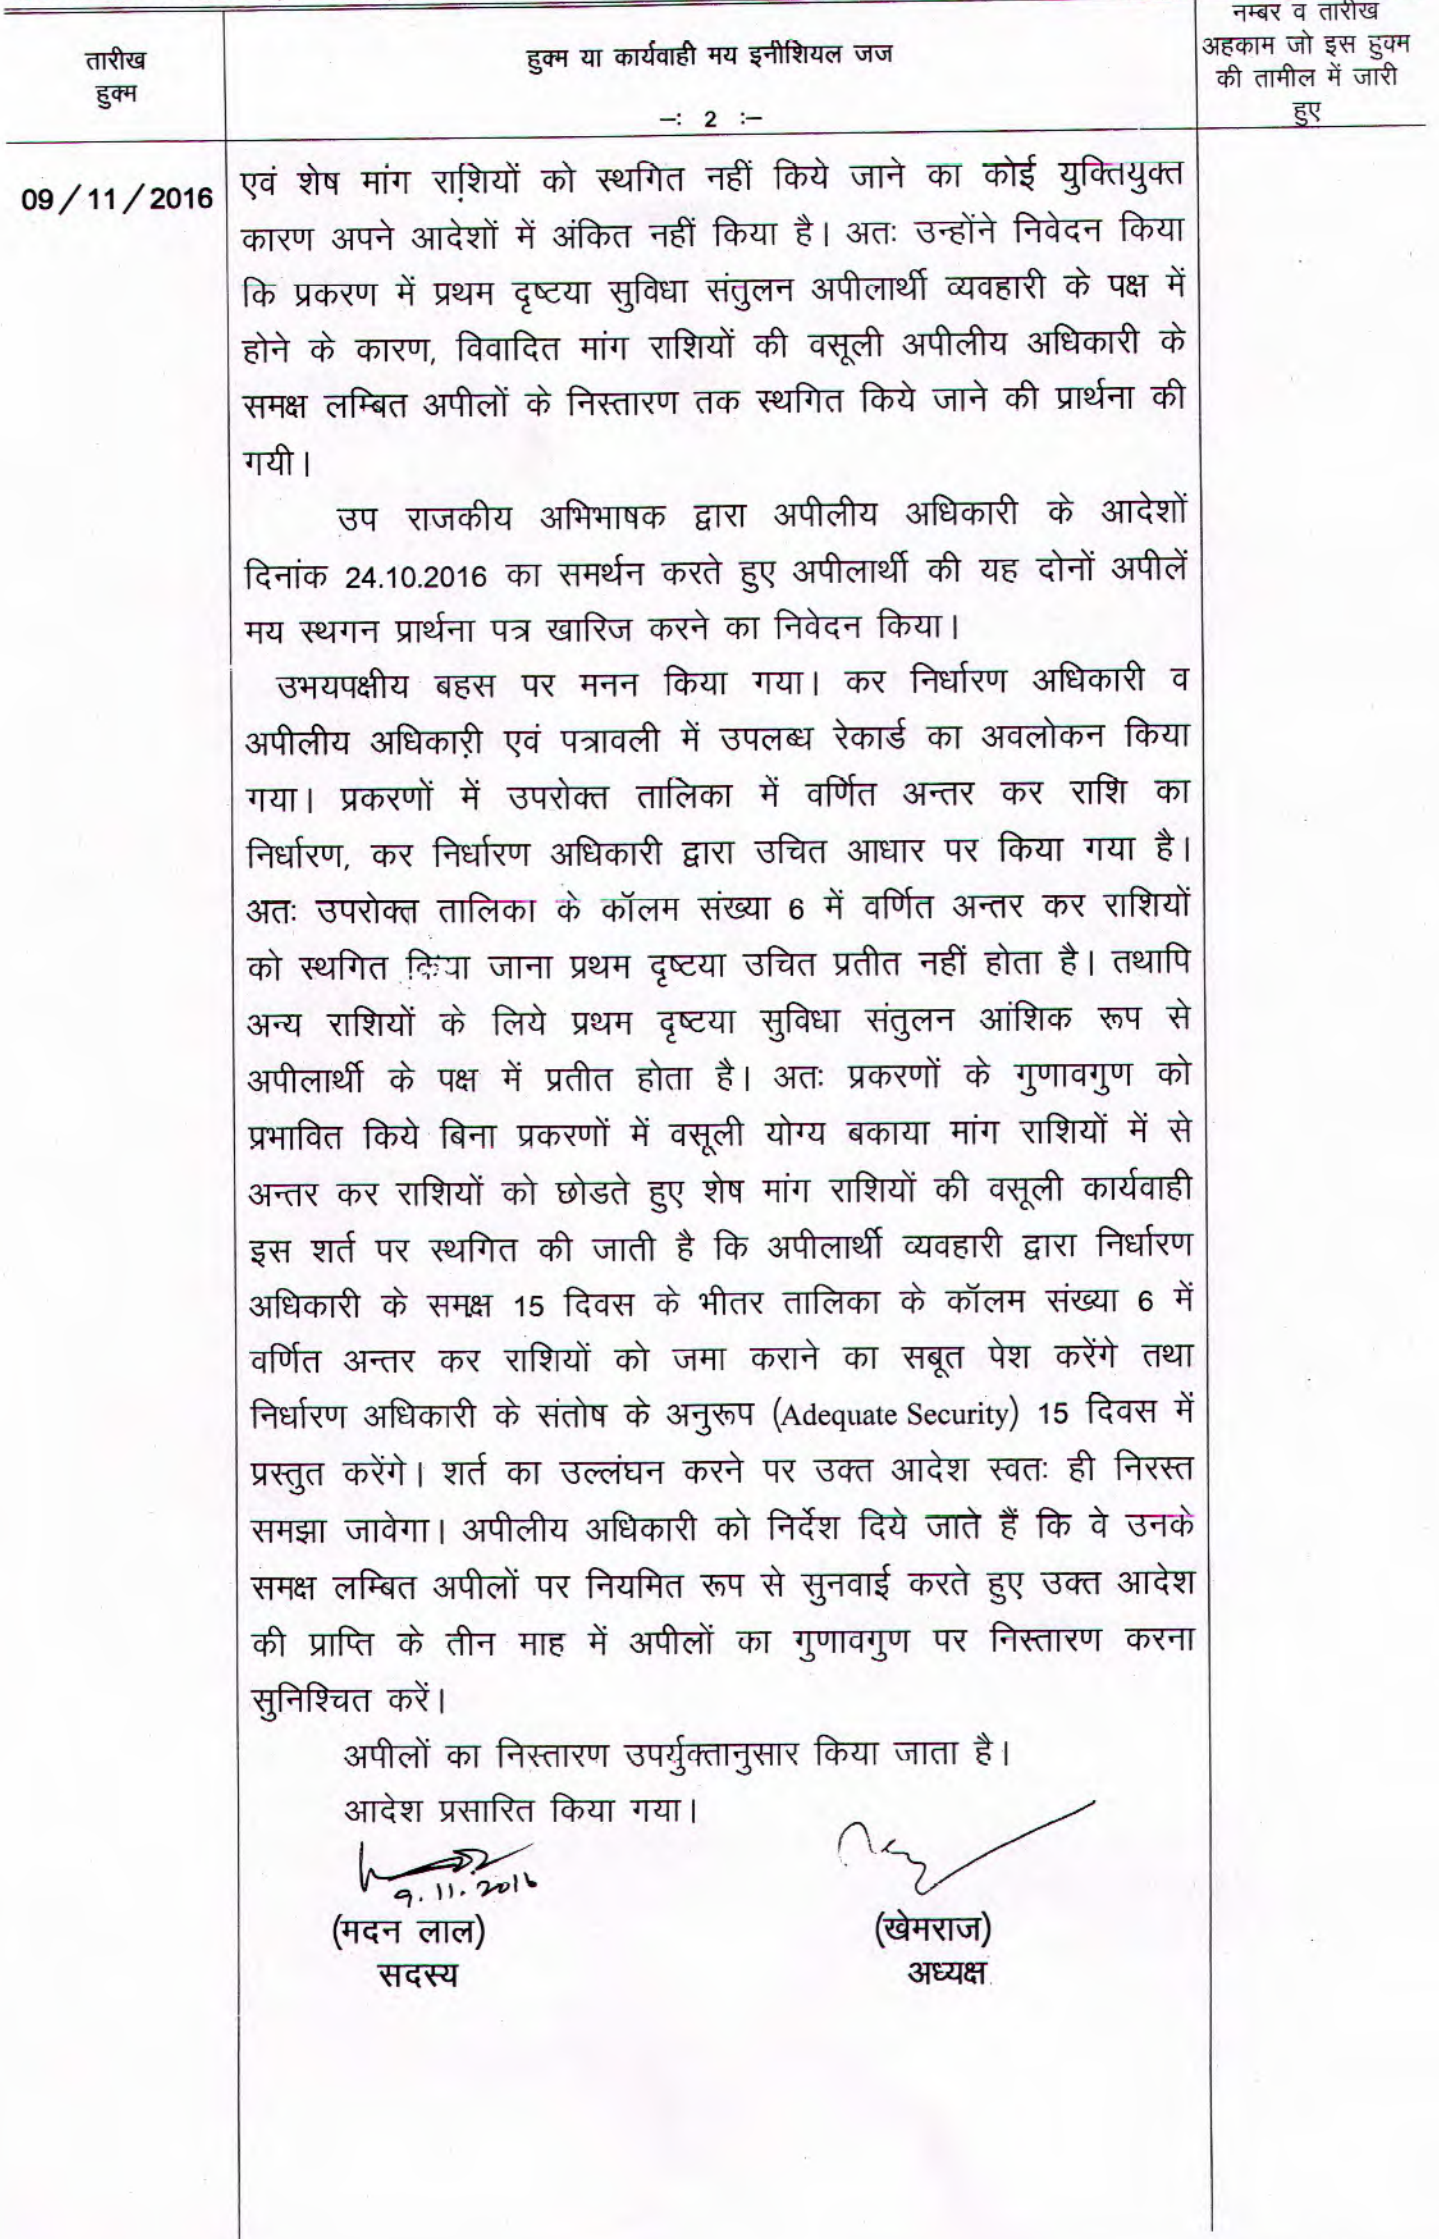 तारीख
हुक्म
हुक्म या कार्यवाही मय इनीशियल जज
–: 2 :–
नम्बर व तारीख
अहकाम जो इस हुक्म
की तामील में जारी
हुए
09/11/2016
एवं शेष मांग राशियों को स्थगित नहीं किये जाने का कोई युक्तियुक्त
कारण अपने आदेशों में अंकित नहीं किया है। अतः उन्होंने निवेदन किया
कि प्रकरण में प्रथम दृष्टया सुविधा संतुलन अपीलार्थी व्यवहारी के पक्ष में
होने के कारण, विवादित मांग राशियों की वसूली अपीलीय अधिकारी के
समक्ष लम्बित अपीलों के निस्तारण तक स्थगित किये जाने की प्रार्थना की
गयी।
उप राजकीय अभिभाषक द्वारा अपीलीय अधिकारी के आदेशों
दिनांक 24.10.2016 का समर्थन करते हुए अपीलार्थी की यह दोनों अपीलें
मय स्थगन प्रार्थना पत्र खारिज करने का निवेदन किया।
उभयपक्षीय बहस पर मनन किया गया। कर निर्धारण अधिकारी व
अपीलीय अधिकारी एवं पत्रावली में उपलब्ध रेकार्ड का अवलोकन किया
गया। प्रकरणों में उपरोक्त तालिका में वर्णित अन्तर कर राशि का
निर्धारण, कर निर्धारण अधिकारी द्वारा उचित आधार पर किया गया है।
अतः उपरोक्त तालिका के कॉलम संख्या 6 में वर्णित अन्तर कर राशियों
को स्थगित किया जाना प्रथम दृष्टया उचित प्रतीत नहीं होता है। तथापि
अन्य राशियों के लिये प्रथम दृष्टया सुविधा संतुलन आंशिक रूप से
अपीलार्थी के पक्ष में प्रतीत होता है। अतः प्रकरणों के गुणावगुण को
प्रभावित किये बिना प्रकरणों में वसूली योग्य बकाया मांग राशियों में से
अन्तर कर राशियों को छोडते हुए शेष मांग राशियों की वसूली कार्यवाही
इस शर्त पर स्थगित की जाती है कि अपीलार्थी व्यवहारी द्वारा निर्धारण
अधिकारी के समक्ष 15 दिवस के भीतर तालिका के कॉलम संख्या 6 में
वर्णित अन्तर कर राशियों को जमा कराने का सबूत पेश करेंगे तथा
निर्धारण अधिकारी के संतोष के अनुरूप (Adequate Security) 15 दिवस में
प्रस्तुत करेंगे। शर्त का उल्लंघन करने पर उक्त आदेश स्वतः ही निरस्त
समझा जावेगा। अपीलीय अधिकारी को निर्देश दिये जाते हैं कि वे उनके
समक्ष लम्बित अपीलों पर नियमित रूप से सुनवाई करते हुए उक्त आदेश
की प्राप्ति के तीन माह में अपीलों का गुणावगुण पर निस्तारण करना
सुनिश्चित करें।
अपीलों का निस्तारण उपर्युक्तानुसार किया जाता है।
आदेश प्रसारित किया गया।
9.11.2016
(मदन लाल)
सदस्य
(खेमराज)
अध्यक्ष